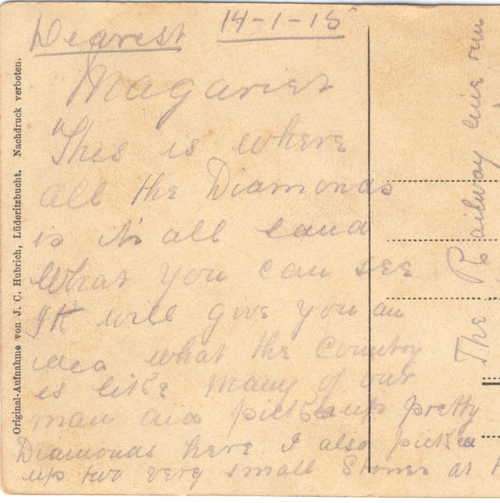 Dearest 14-1-15
Magariet
This is where
all the Diamonds
is it's all land
What you can see
It will give you an
idea what the Country
is like many of our
man picked up pretty
Diamonds here I also picked
up two very small stones at
The Railway line run
Original-Aufnahme von J. C. Hubrich, Lüderitzbucht. Nachdruck verboten.